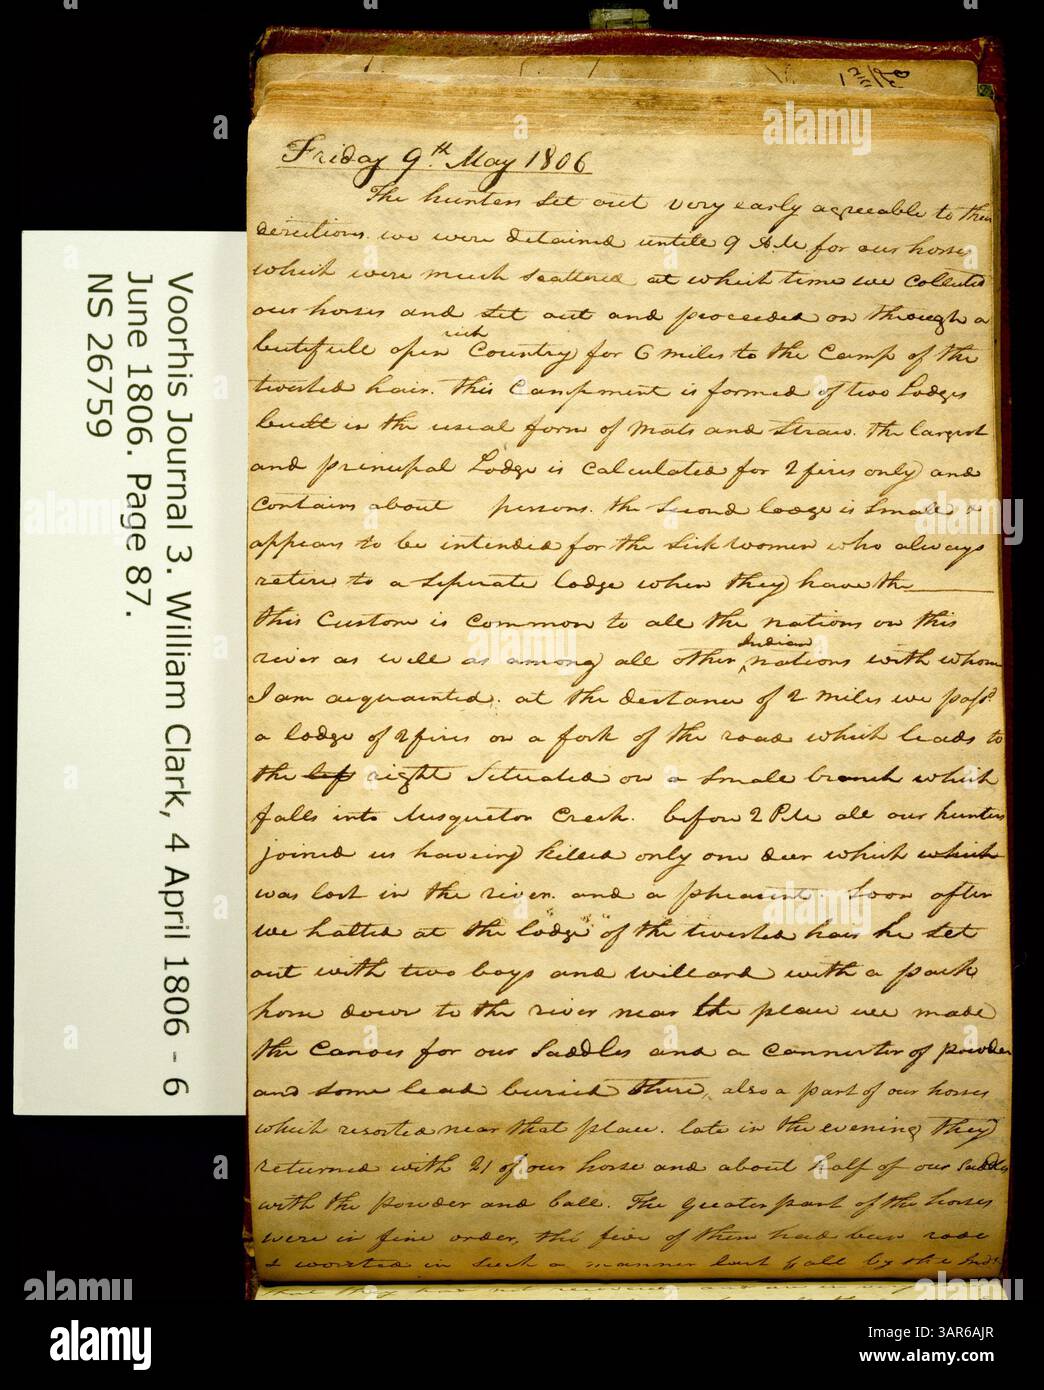 Friday 9th. May 1806
The hunters set out very early agreeable to their
derections. we were detained untill 9 A.M. for our horses
which were much scattered at which time we collected
our horses and set out and proceeded on through a
butifull open rich Country for 6 miles to the Camp of the
twisted hair. this Campment is formed of two Lodges
built in the usual form of mats and straw. the largest
and principal Lodge is calculated for 2 fires only and
contains about persons. the second lodge is small &
appears to be intended for the sick women who always
retire to a seperate lodge when they have the
this custom is common to all the nations on this
river as well as among all other Indian nations with whom
I am acquainted. at the distance of 2 miles we passd.
a lodge of 2 fires on a fork of the road which leads to
the left right situated on a small branch which
falls into Musqueton Creek. before 2 P.M. all our hunters
joined us haveing killed only one deer which which
was lost in the river. and a pheasent. Soon after
we halted at the lodge of the twisted hair he set
out with two boys and willard with a pack
horse down to the river near the place we made
the Canoes for our Saddles and a cannester of powder
and some lead buried there, also a part of our horses
which resorted near that place. late in the evening they
returned with 21 of our horse and about half of our saddles
with the powder and ball. The greater part of the horses
were in fine order, tho five of them had been rode
& worsted in such a manner last fall by the Inds.
that they had not recovered and are in very
Voorhis Journal 3. William Clark, 4 April 1806 - 6
June 1806. Page 87.
NS 26759
alamy
a
Image ID: 3AR6AJR
www.alamy.com